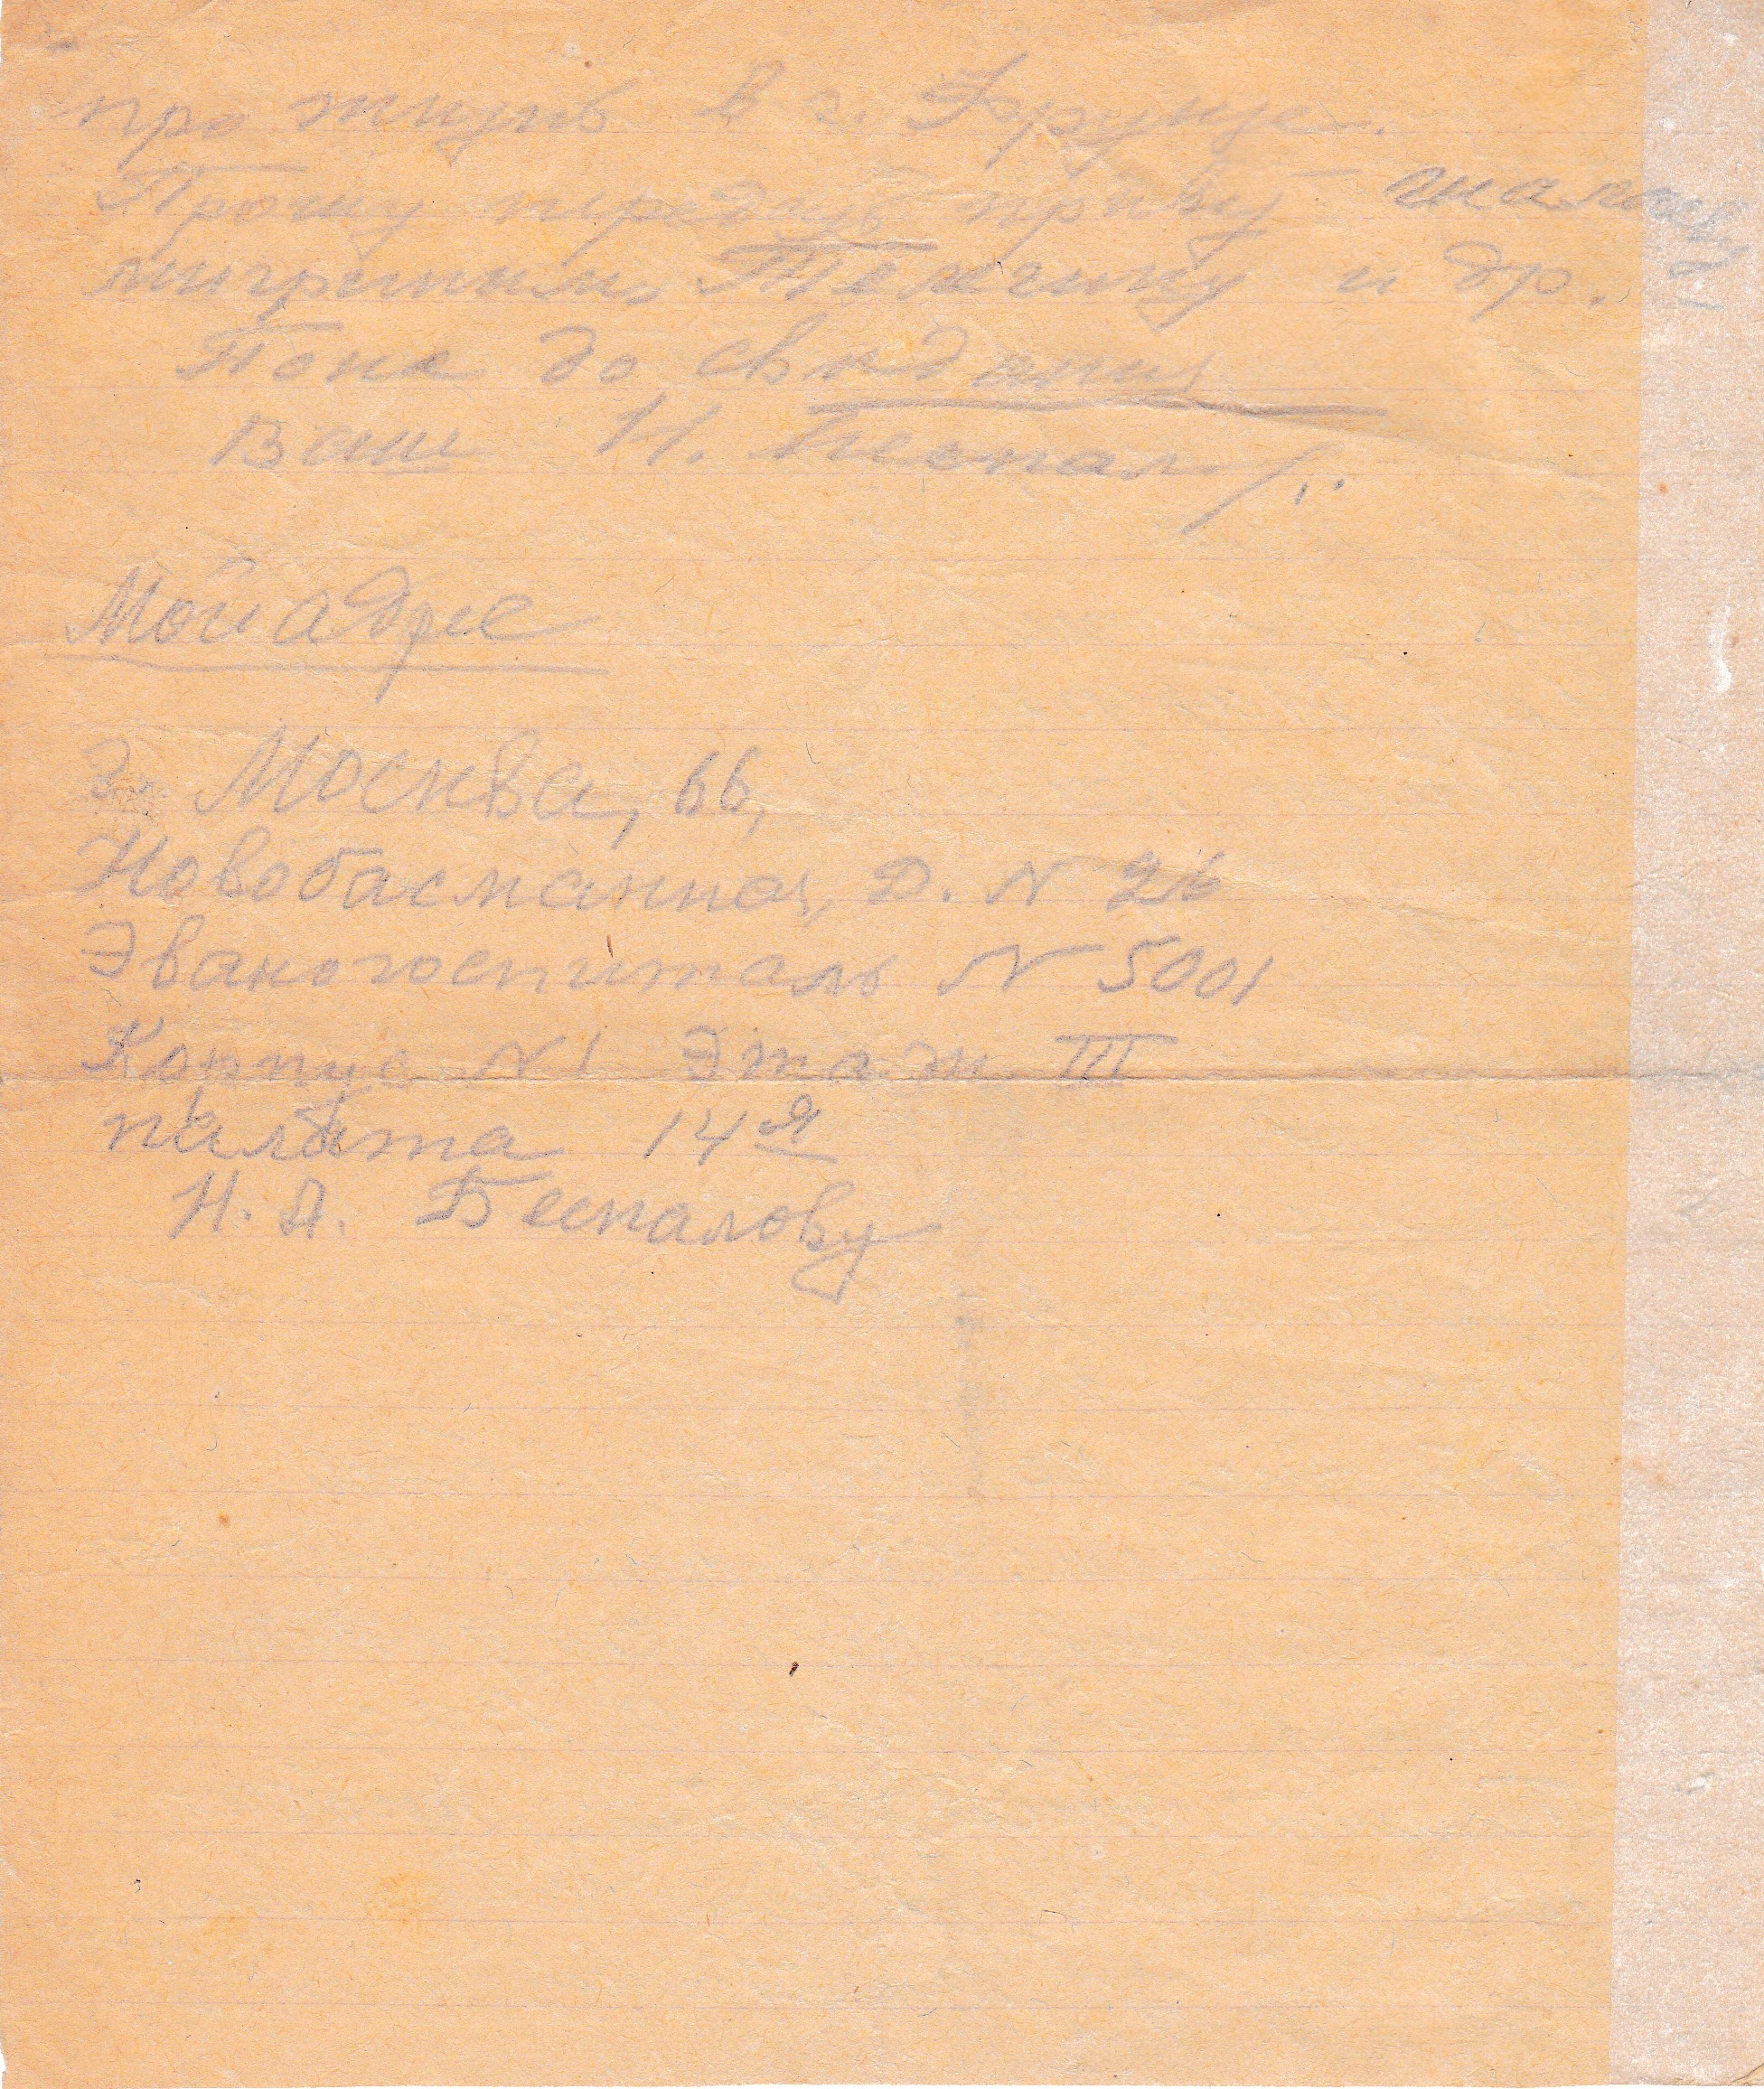 про жизнь в г. Фрунзе.
Прошу передать привет
и др.
Пока до свидания
Ваш Н. Беспал
Мой адрес
г. Москва, 66,
Новобасманная, д. N 26
Эвакогоспиталь N 5001
Корпус N 1 Этаж III
палата 14я
Н. А. Беспалову